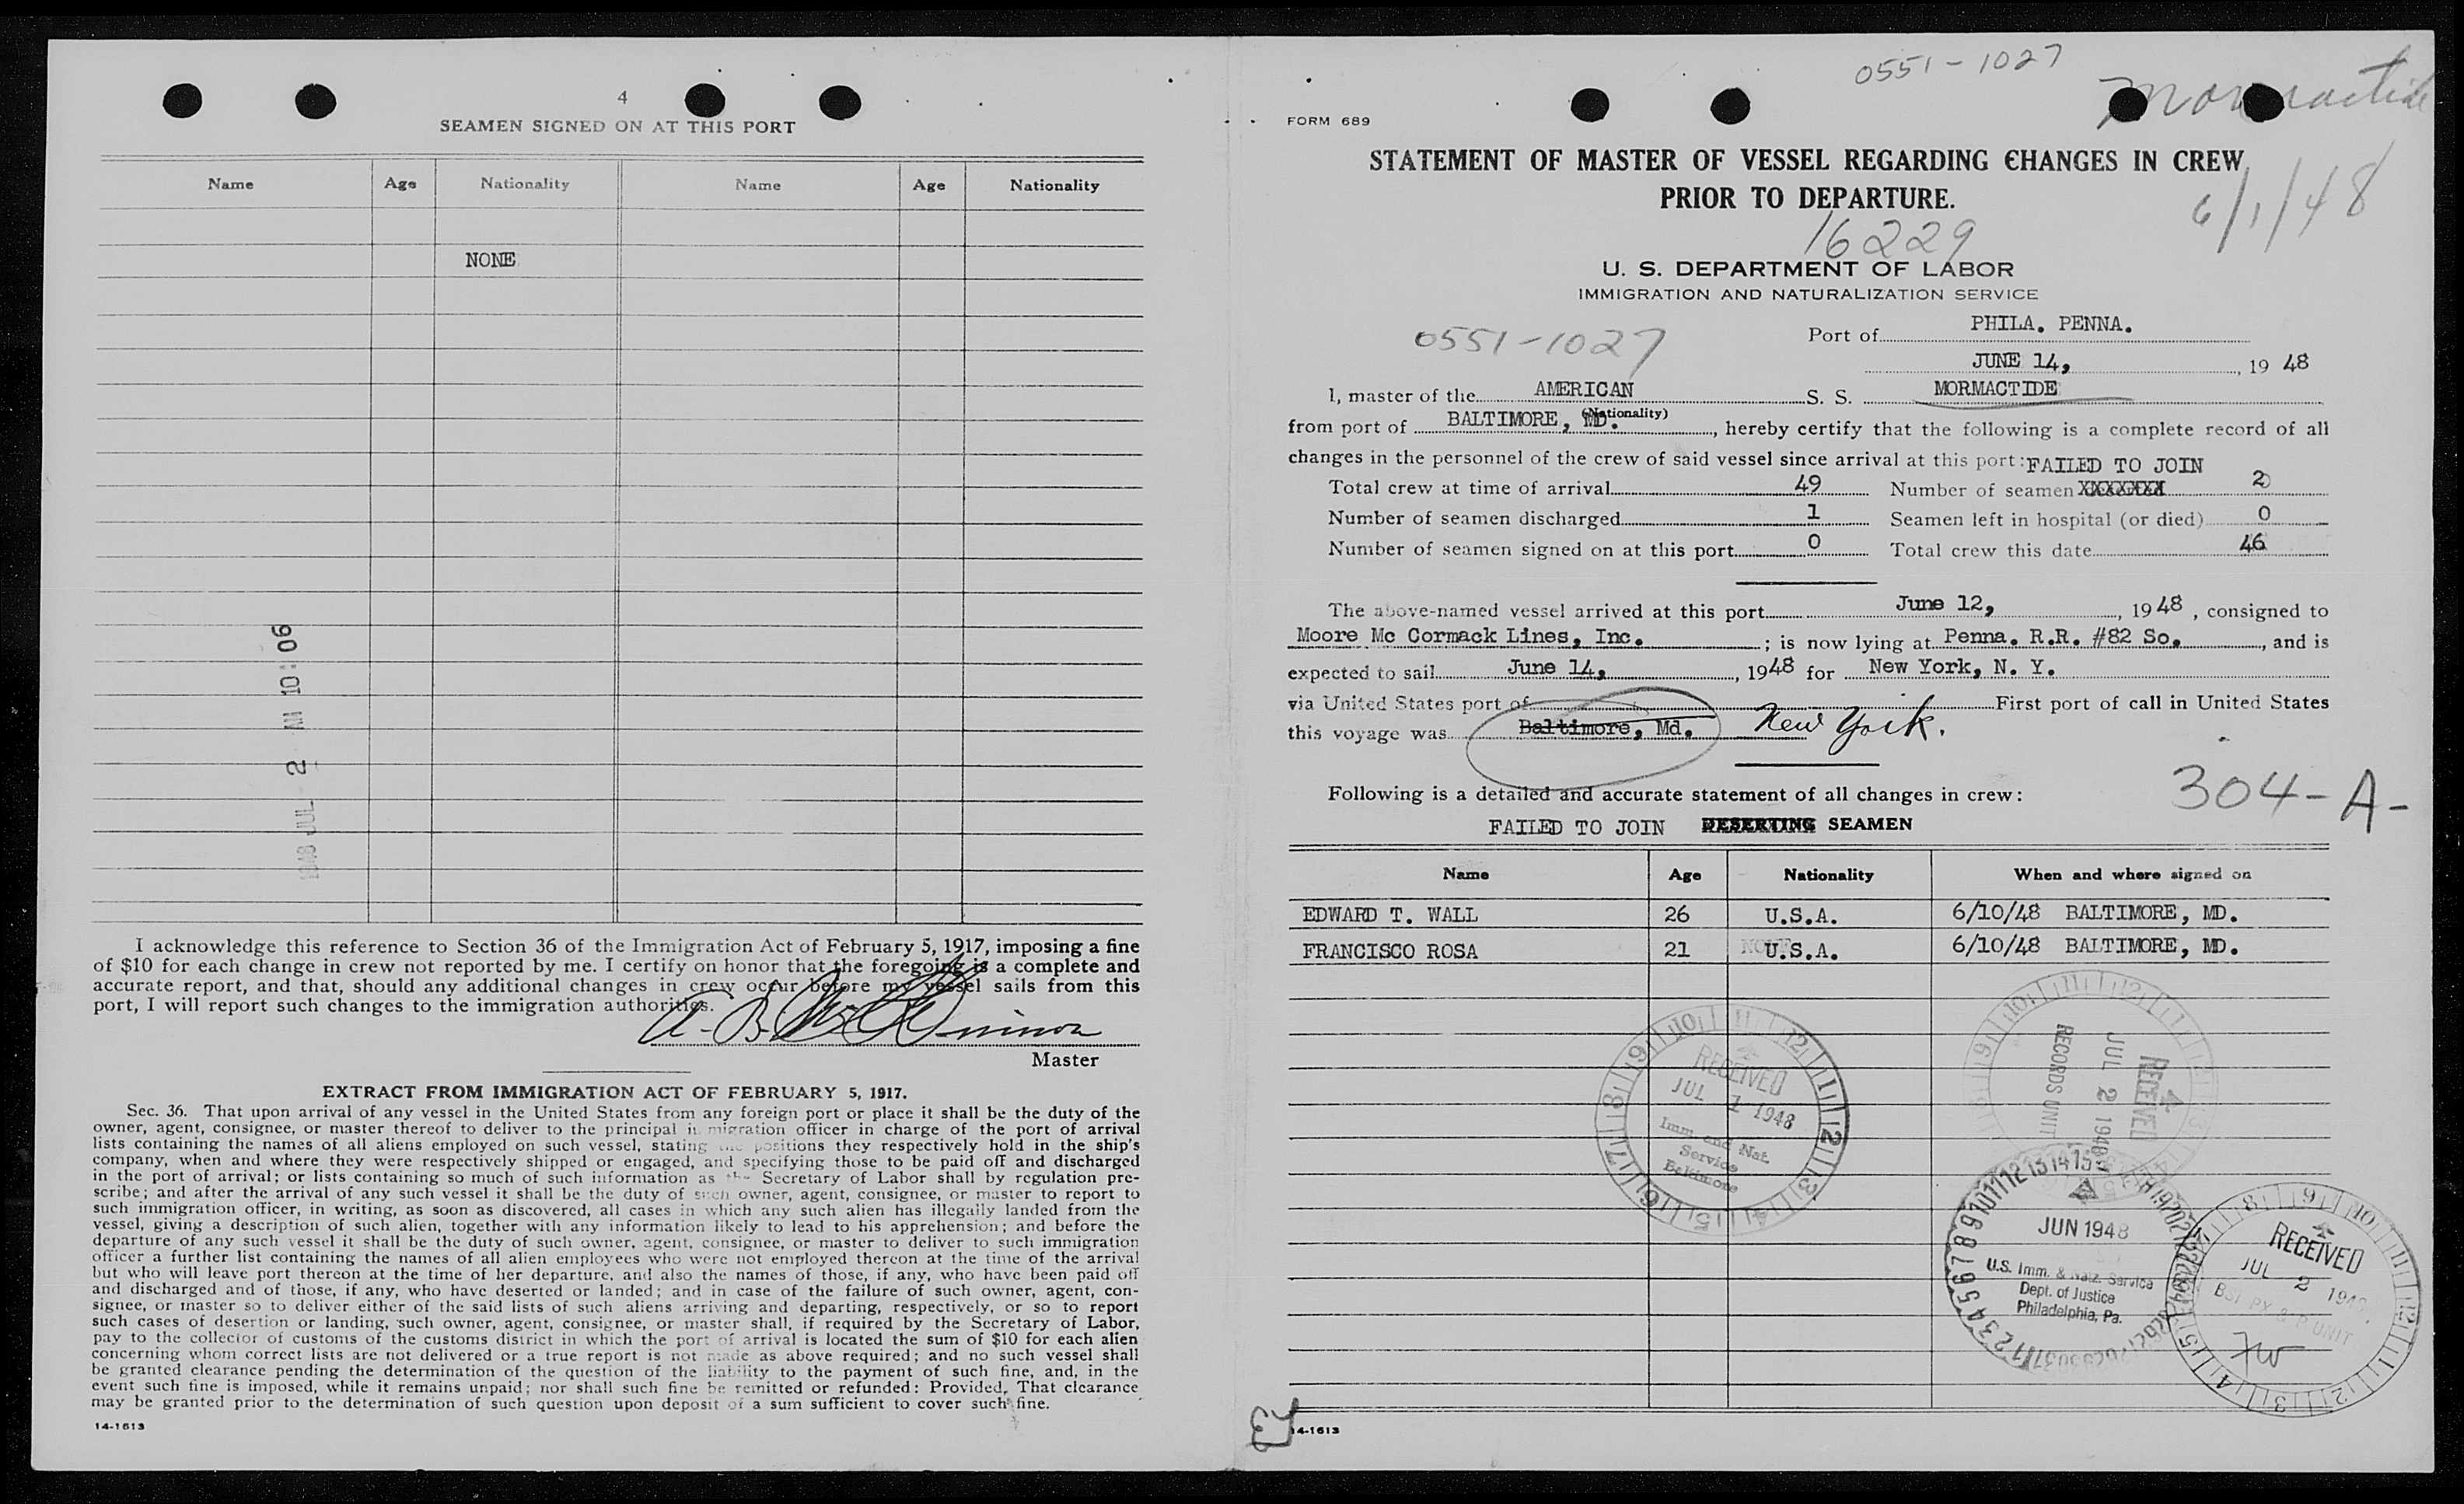 4
SEAMEN SIGNED ON AT THIS PORT
Name Age Nationality Name Age Nationality
NONE
1948 JUL 2 AM 10:06
I acknowledge this reference to Section 36 of the Immigration Act of February 5, 1917, imposing a fine
of $10 for each change in crew not reported by me. I certify on honor that the foregoing is a complete and
accurate report, and that, should any additional changes in crew occur before my vessel sails from this
port, I will report such changes to the immigration authorities.
A. B.
Master
EXTRACT FROM IMMIGRATION ACT OF FEBRUARY 5, 1917.
Sec. 36. That upon arrival of any vessel in the United States from any foreign port or place it shall be the duty of the
owner, agent, consignee, or master thereof to deliver to the principal immigration officer in charge of the port of arrival
lists containing the names of all aliens employed on such vessel, stating the positions they respectively hold in the ship's
company, when and where they were respectively shipped or engaged, and specifying those to be paid off and discharged
in the port of arrival; or lists containing so much of such information as the Secretary of Labor shall by regulation pre-
scribe; and after the arrival of any such vessel it shall be the duty of such owner, agent, consignee, or master to report to
such immigration officer, in writing, as soon as discovered, all cases in which any such alien has illegally landed from the
vessel, giving a description of such alien, together with any information likely to lead to his apprehension; and before the
departure of any such vessel it shall be the duty of such owner, agent, consignee, or master to deliver to such immigration
officer a further list containing the names of all alien employees who were not employed thereon at the time of the arrival
but who will leave port thereon at the time of her departure, and also the names of those, if any, who have been paid off
and discharged and of those, if any, who have deserted or landed; and in case of the failure of such owner, agent, con-
signee, or master so to deliver either of the said lists of such aliens arriving and departing, respectively, or so to report
such cases of desertion or landing, such owner, agent, consignee, or master shall, if required by the Secretary of Labor,
pay to the collector of customs of the customs district in which the port of arrival is located the sum of $10 for each alien
concerning whom correct lists are not delivered or a true report is not made as above required; and no such vessel shall
be granted clearance pending the determination of the question of the liability to the payment of such fine, and, in the
event such fine is imposed, while it remains unpaid; nor shall such fine be remitted or refunded: Provided, That clearance
may be granted prior to the determination of such question upon deposit of a sum sufficient to cover such fine.
14-1613
0551-1027
Mormactide
FORM 689
STATEMENT OF MASTER OF VESSEL REGARDING CHANGES IN CREW
PRIOR TO DEPARTURE.
6/1/48
16229
U. S. DEPARTMENT OF LABOR
IMMIGRATION AND NATURALIZATION SERVICE
0551-1027
Port of PHILA. PENNA.
JUNE 14, 1948
I, master of the AMERICAN S. S. MORMACTIDE
(Nationality)
from port of BALTIMORE, MD., hereby certify that the following is a complete record of all
changes in the personnel of the crew of said vessel since arrival at this port: FAILED TO JOIN
Total crew at time of arrival 49 Number of seamen XXXXXXX 2
Number of seamen discharged 1 Seamen left in hospital (or died) 0
Number of seamen signed on at this port 0 Total crew this date 46
The above-named vessel arrived at this port June 12, 1948, consigned to
Moore Mc Cormack Lines, Inc.; is now lying at Penna. R.R. #82 So., and is
expected to sail June 14, 1948 for New York, N. Y.
via United States port of First port of call in United States
this voyage was Baltimore, Md. New York.
Following is a detailed and accurate statement of all changes in crew:
304-A-
FAILED TO JOIN DESERTING SEAMEN
Name Age Nationality When and where signed on
EDWARD T. WALL 26 U.S.A. 6/10/48 BALTIMORE, MD.
FRANCISCO ROSA 21 U.S.A. 6/10/48 BALTIMORE, MD.
RECEIVED
JUL 1 1948
Imm and Nat.
Service
Baltimore
RECEIVED
JUL 2 1948
RECORDS UNIT
JUN 1948
U.S. Imm. & Natz. Service
Dept. of Justice
Philadelphia, Pa.
RECEIVED
JUL 2 1948
UNIT
14-1613